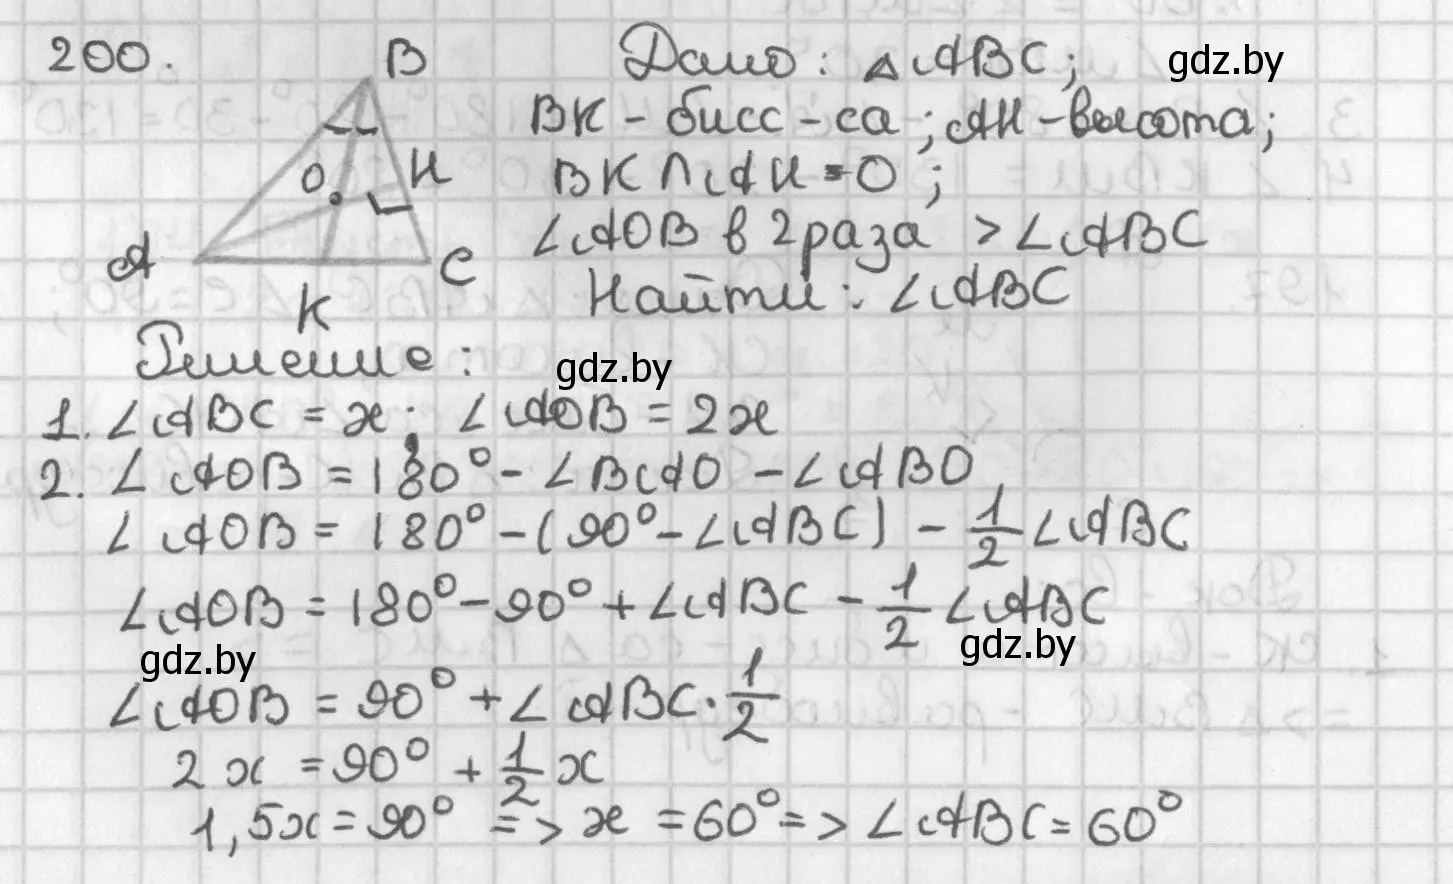 200.
B
O
H
A
C
K
Дано: △ABC;
BK - бисс-са; AH - высота;
BK ∩ AH = O;
∠AOB в 2 раза > ∠ABC
Найти: ∠ABC
gdz.by
Решение:
gdz.by
1. ∠ABC = x; ∠AOB = 2x
2. ∠AOB = 180° - ∠BAO - ∠ABO
∠AOB = 180° - (90° - ∠ABC) - 1/2 ∠ABC
∠AOB = 180° - 90° + ∠ABC - 1/2 ∠ABC
gdz.by
gdz.by
∠AOB = 90° + ∠ABC · 1/2
2x = 90° + 1/2 x
1,5x = 90° => x = 60° => ∠ABC = 60°